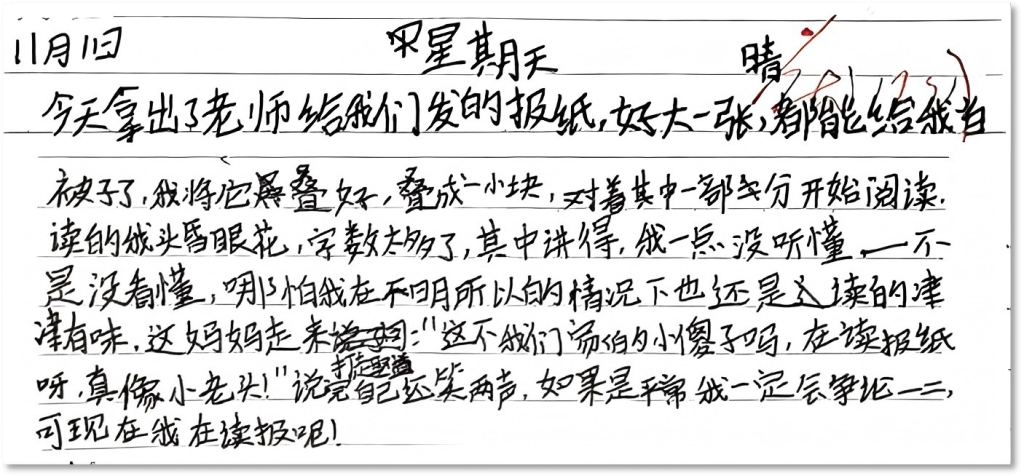 11月1日 星期天 晴
今天拿出了老师给我们发的报纸,好大一张,都能给我当
被子了,我将它叠好,叠成一小块,对着其中一部分开始阅读.
读的我头昏眼花,字数太多了,其中讲得,我一点没听懂,一不
是没看懂,哪怕我在不明所以的情况下也还是读的津
津有味.这妈妈走来打趣道:"这不我们家的小傻子吗,在读报纸
呀,真像小老头!"说完自己还笑两声,如果是平常我一定会争论一二,
可现在我在读报呢!